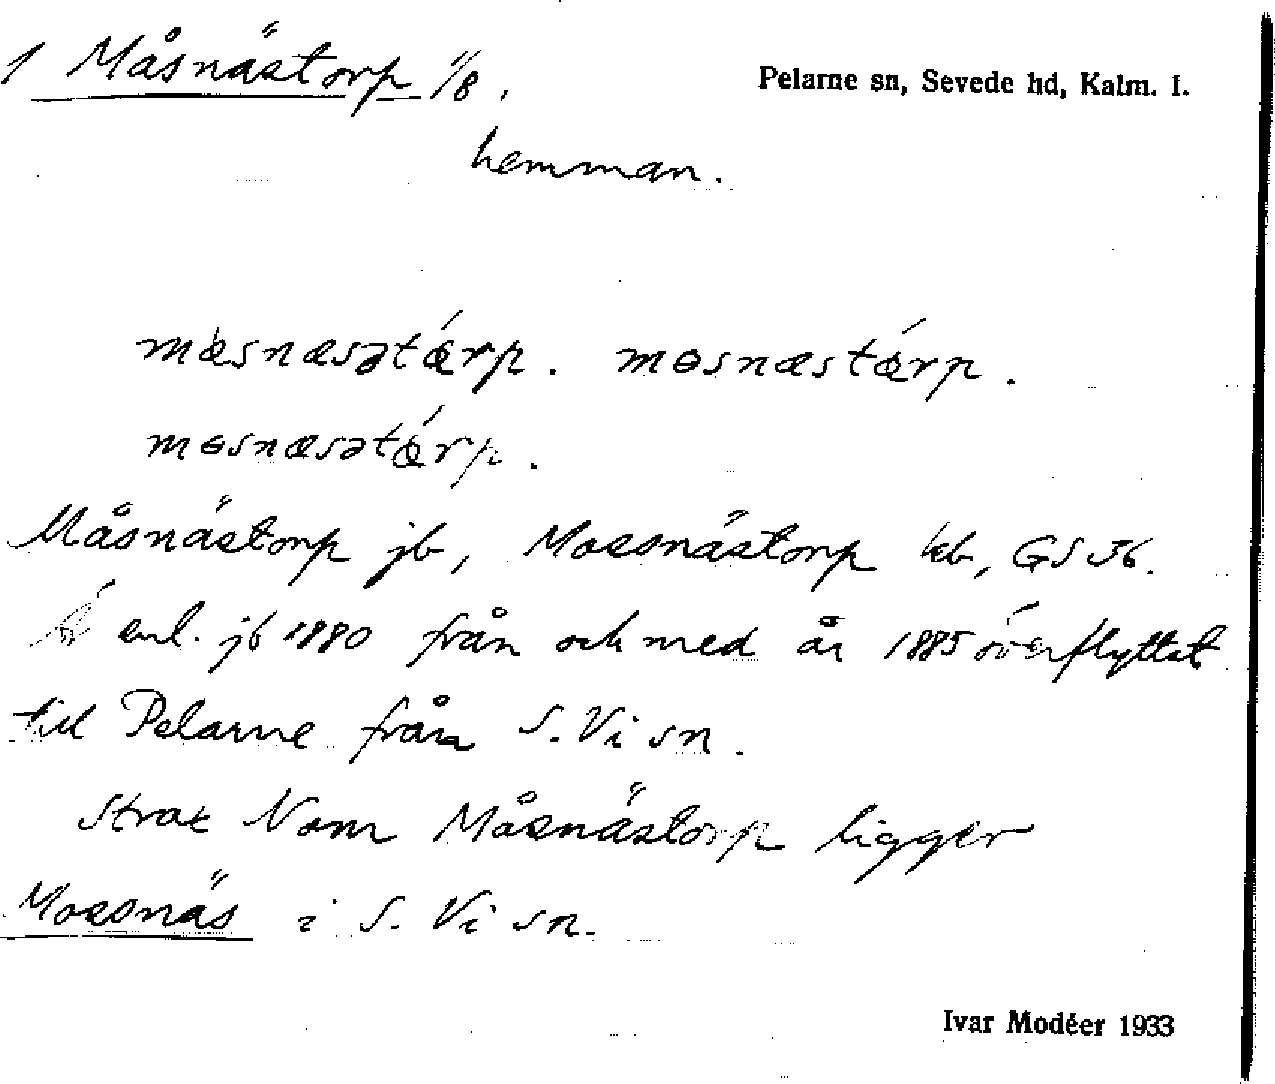 1 Måsnästorp 1/8.
Pelarne sn, Sevede hd, Kalm. l.
hemman.
mæsnæsətǽrp. mɵsnæstǽrp.
mɵsnæsətǽrp.
Måsnästorp jb, Mossnästorp kb, GS J6.
Är enl. jb 1880 från och med år 1885 överflyttat
till Pelarne från S. Vi sn.
Strax N om Måsnästorp ligger
Mossnäs i S. Vi sn.
Ivar Modéer 1933